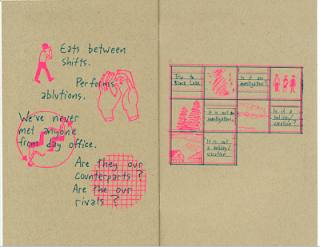 Eats between
shifts.
Performs
ablutions.
We've never
met anyone
from day office.
Are they our
counterparts?
Are the our
rivals?
Trip to
Black Lake.
Is it an
investigation?
It is not an
investigation.
Is it a
holiday/
vacation?
It is not
a holiday/
vacation.